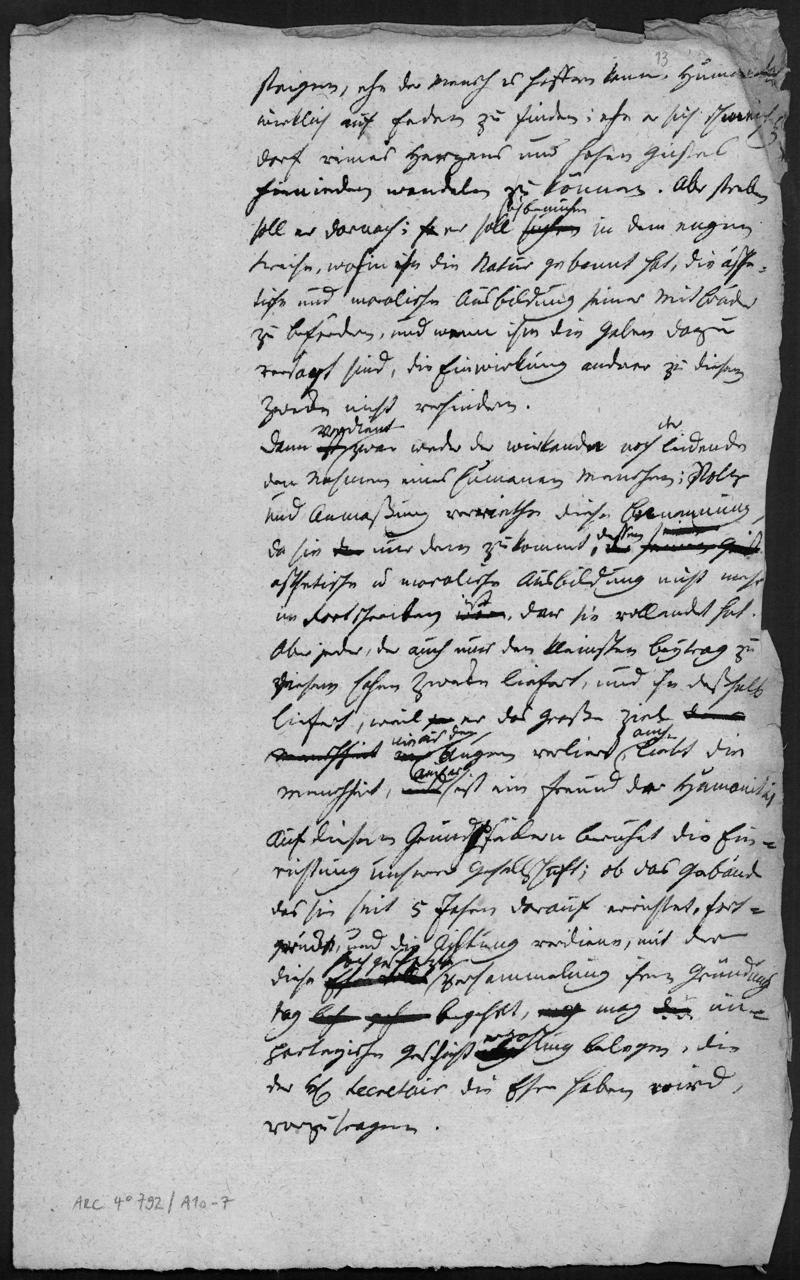 13
steigen, ehe der Mensch es hoffen kann, Humanität
wirklich auf Erden zu finden; ehe er sich schmeicheln
darf reines Herzens und hohen Geistes
hienieden wandeln zu können. Aber streben
soll er darnach; er soll sich bemühen in dem engen
Kreise, wohin ihn die Natur gebannt hat, die ästhe=
tische und moralische Ausbildung seiner Mitbrüder
zu befördern, und wenn ihm die Gaben dazu
versagt sind, die Einwirkung andrer zu diesem
Zwecke nicht verhindern.
Dann verdient zwar weder der wirkende noch der leidende
den Nahmen eines humanen Menschen; Stolz
und Anmaßung verriethe diese Benennung,
da sie nur dem zukommt, dessen
ästhetische u moralische Ausbildung nicht mehr
im Fortschreiten ist, der sie vollendet hat.
Aber jeder, der auch nur den kleinsten Beytrag zu
diesem hohen Zwecke liefert, und ihn deßhalb
liefert, weil er das große Ziel
nie aus den Augen verliert, auch liebt die
Menschheit, ist ein Freund der Humanität
Auf diesen Grundpfeilern beruhet die Ein=
richtung unserer Gesellschaft; ob das Gebäude
das sie seit 5 Jahren darauf errichtet, fort=
und die Achtung verdiene, mit der
diese Versammlung ihren Gründungs
tag begehet, mag un=
parteyische Geschichtserzählung belegen, die
der H Secretair die Ehre haben wird,
vorzutragen.
ARC 4° 792 / A10-7